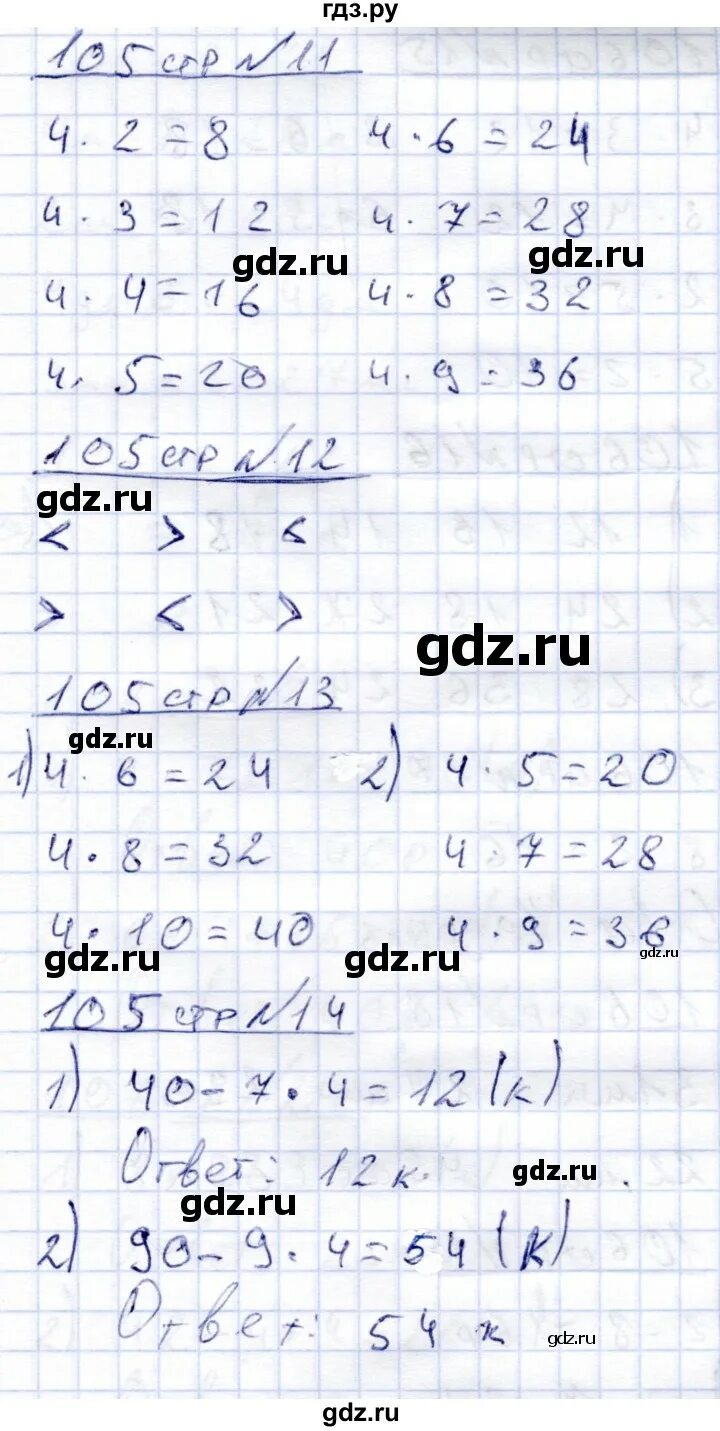 гдз.ру
105 стр №11
4·2=8 4·6=24
4·3=12 4·7=28
gdz.ru gdz.ru
4·4=16 4·8=32
4·5=20 4·9=36
105 стр №12
gdz.ru
< > <
> < >
gdz.ru
105 стр №13
gdz.ru
1) 4·6=24 2) 4·5=20
4·8=32 4·7=28
4·10=40 4·9=36
gdz.ru gdz.ru gdz.ru
105 стр №14
1) 40-7·4=12 (к)
Ответ: 12 к.
gdz.ru
gdz.ru
2) 90-9·4=54 (к)
Ответ: 54 к
gdz.ru
gdz.ru